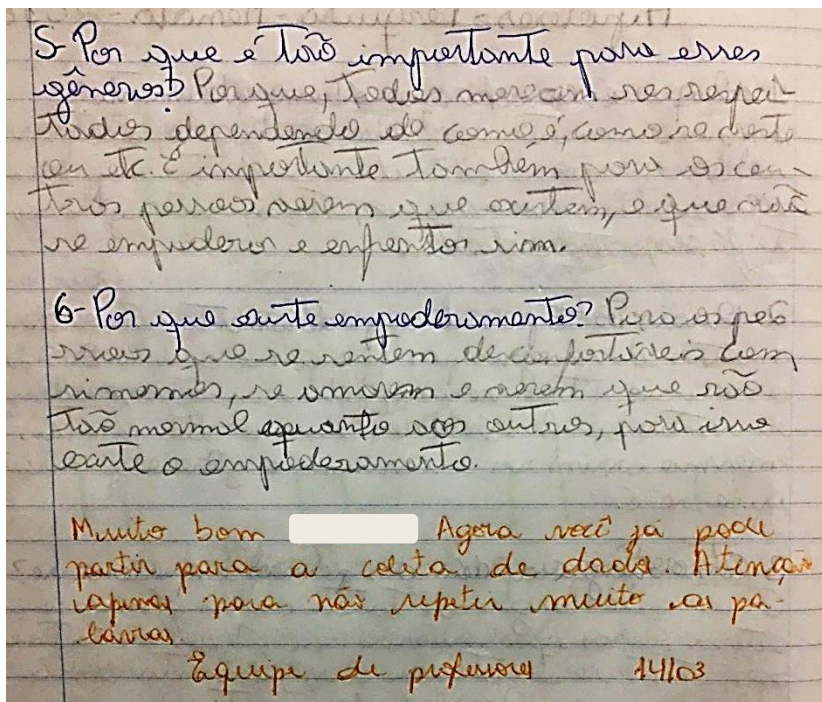 5- Por que é tão importante para esses
gêneros? Por que, todos merecem ser respei-
tados dependendo do como é, como se veste
ou etc. É importante também para as ou-
tras pessoas verem que existem, e que vão
se empoderar e enfrentar sim.
6- Por que existe empoderamento? Para as pes
soas que se sentem desconfortáveis com
si mesmas, se amarem e verem que são
tão normal quanto aos outros, para isso
existe o empoderamento.
Muito bom Agora você já pode
partir para a coleta de dada. Atenção
apenas para não repetir muito as pa-
lavras.
Equipe de professores 14/03